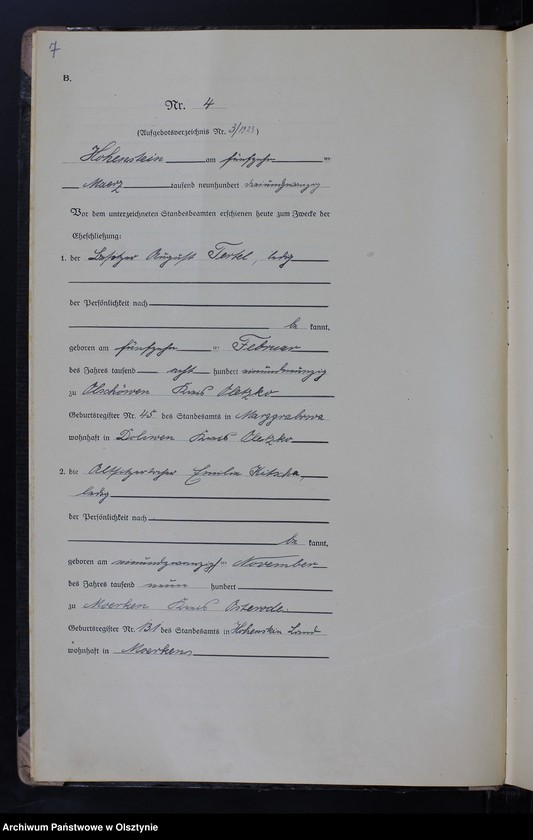 7
B.
Nr. 4
(Aufgebotsverzeichnis Nr. 3/1923)
Hohenstein am fünfzehn ten
Maerz tausend neunhundert dreiundzwanzig
Vor dem unterzeichneten Standesbeamten erschienen heute zum Zwecke der
Eheschließung:
1. der Besitzer August Tertel, ledig
der Persönlichkeit nach
be kannt,
geboren am fünfzehn ten Februar
des Jahres tausend acht hundert
zu Olschöwen Kreis Oletzko
Geburtsregister Nr. 45 des Standesamts in Marggrabowa
wohnhaft in Doliwen Kreis Oletzko
2. die Altsitzertochter Emilie Kitscha,
ledig
der Persönlichkeit nach
be kannt,
geboren am ten November
des Jahres tausend neun hundert
zu Moerken Kreis Osterode
Geburtsregister Nr. 131 des Standesamts in Hohenstein Land
wohnhaft in Moerken
Archiwum Państwowe w Olsztynie